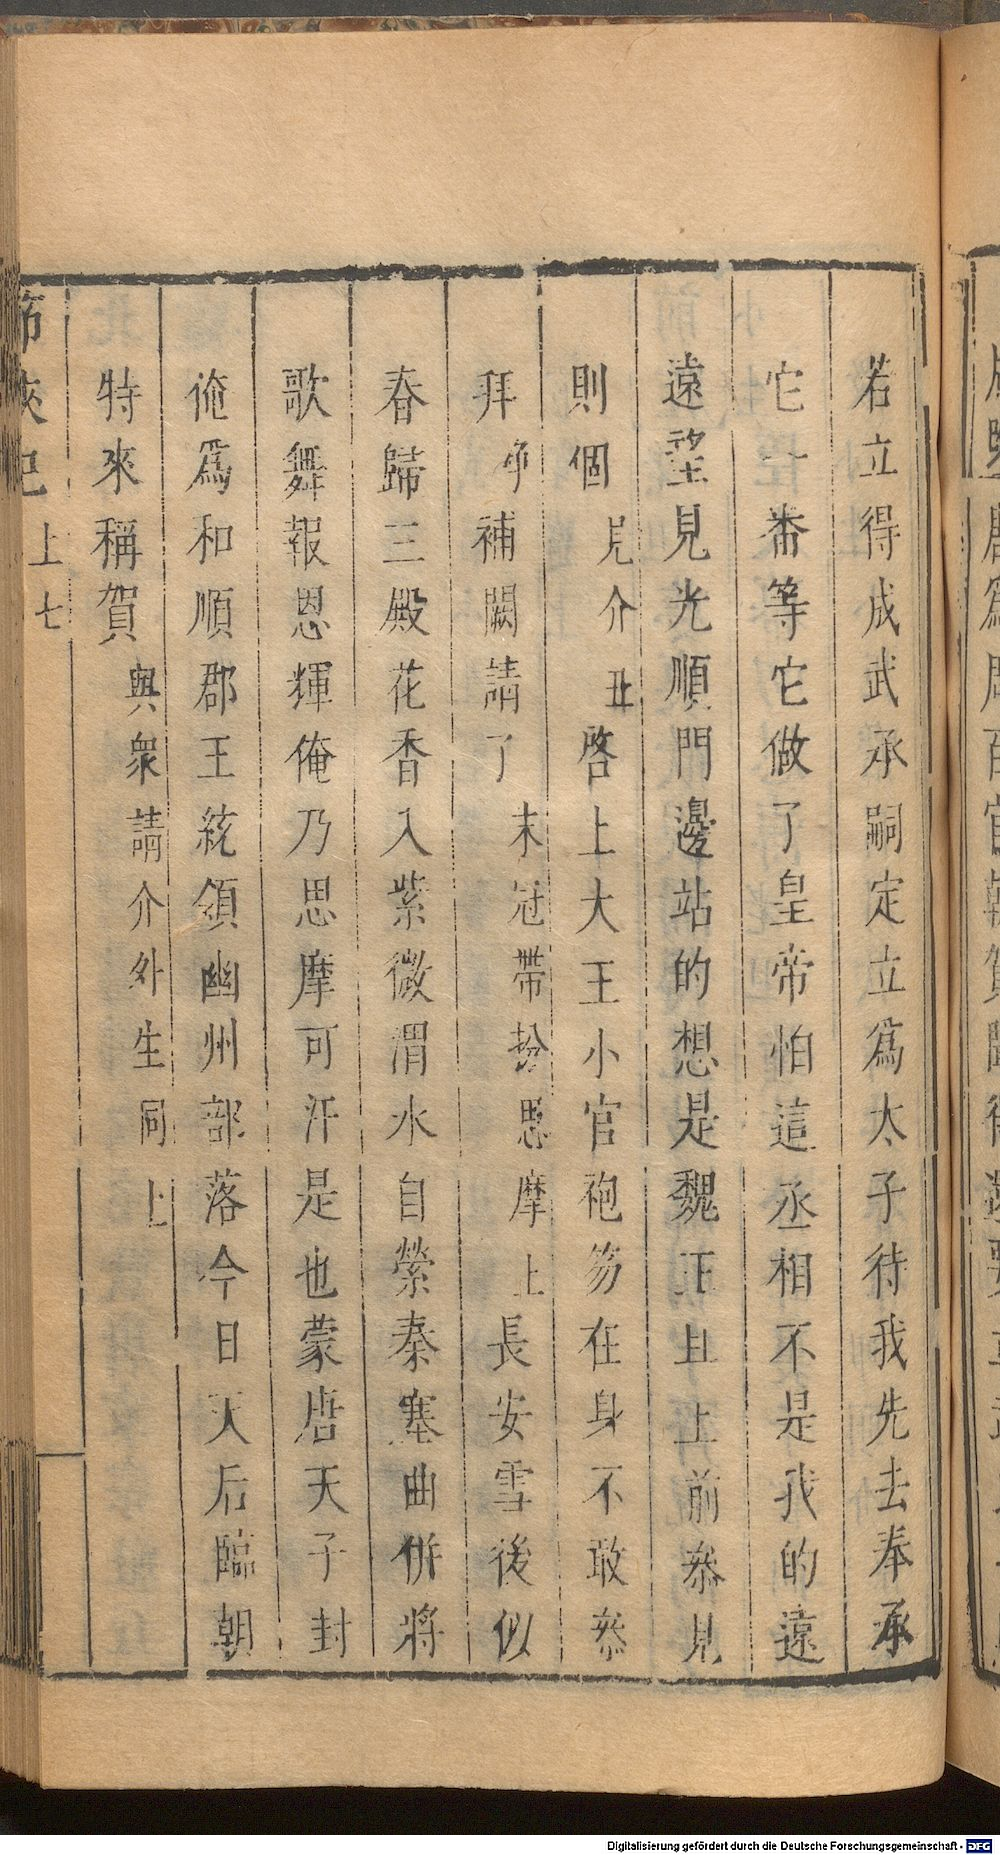 若立得成武承嗣定立爲太子待我先去奉承
它一番等它做了皇帝怕這丞相不是我的遠
遠望見光順門邊站的想是魏王且上前叅見
則個見介丑啓上大王小官袍笏在身不敢叅
拜淨補闕請了末冠帶扮思摩上長安雪後似
春歸三殿花香入紫微渭水自縈秦塞曲併將
歌舞報恩輝俺乃思摩可汗是也蒙唐天子封
俺爲和順郡王統領幽州部落今日天后臨朝
特來稱賀與衆請介外生同上
上七
Digitalisierung gefördert durch die Deutsche Forschungsgemeinschaft - DFG